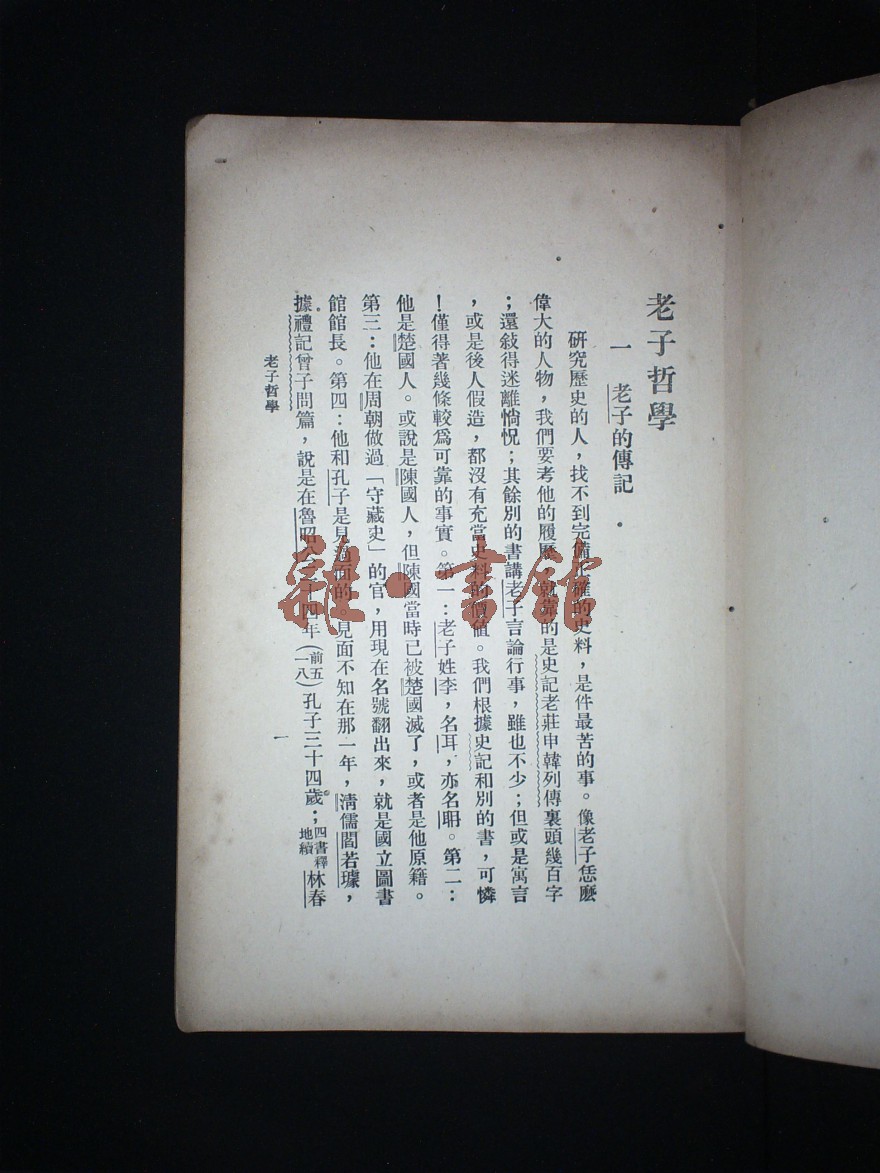 老子哲學
一 老子的傳記
研究歷史的人，找不到完備正確的史料，是件最苦的事。像老子恁麽
偉大的人物，我們要考他的履歷，就靠的是史記老莊申韓列傳裏頭幾百字
；還敍得迷離惝怳；其餘別的書講老子言論行事，雖也不少；但或是寓言
，或是後人假造，都沒有充當史料的價值。我們根據史記和別的書，可憐
！僅得著幾條較爲可靠的事實。第一：老子姓李，名耳，亦名耼。第二：
他是楚國人。或說是陳國人，但陳國當時已被楚國滅了，或者是他原籍。
第三：他在周朝做過「守藏史」的官，用現在名號翻出來，就是國立圖書
館館長。第四：他和孔子是見過面的。見面不知在那一年，淸儒閻若璩，
據禮記曾子問篇，說是在魯昭公二十四年（前五一八）孔子三十四歲；四書釋地續林春
老子哲學
一
雜·書館